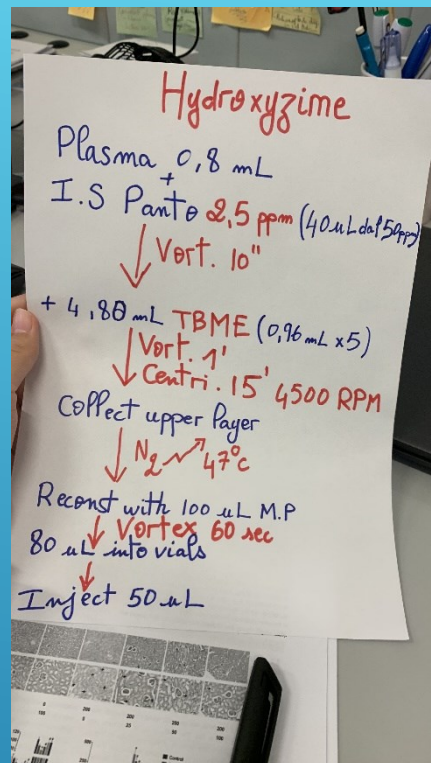 Hydroxyzime
Plasma 0,8 mL
+
I.S Panto 2,5 ppm (40 uL dal 50ppm)
Vort. 10"
+ 4,80 mL TBME (0,96 mL x5)
Vort. 1'
Centri. 15' 4500 RPM
Collect upper layer
N2 47°c
Reconst with 100 uL M.P
Vortex 60 sec
80 uL into vials
Inject 50 uL